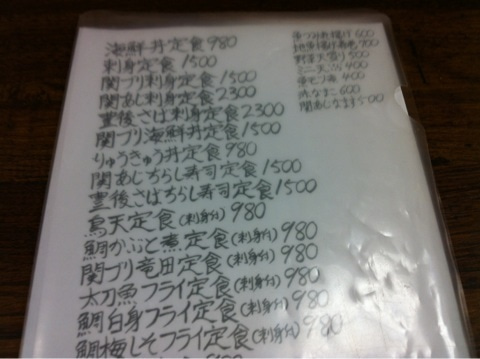 海鮮丼定食 980
刺身定食 1500
関ブリ刺身定食 1500
関あじ刺身定食 2300
豊後さば刺身定食 2300
関ブリ海鮮丼定食 1500
りゅうきゅう丼定食 980
関あじちらし寿司定食 1500
豊後さばちらし寿司定食 1500
鳥天定食(刺身付) 980
鯛かぶと煮定食(刺身付) 980
関ブリ竜田定食(刺身付) 980
太刀魚フライ定食(刺身付) 980
鯛白身フライ定食(刺身付) 980
鯛梅しそフライ定食(刺身付) 980
魚つみれ揚げ 600
地魚揚げ 700
野菜天盛り 500
ミニ天ぷら 400
400
赤なまこ 600
関あじなます 500